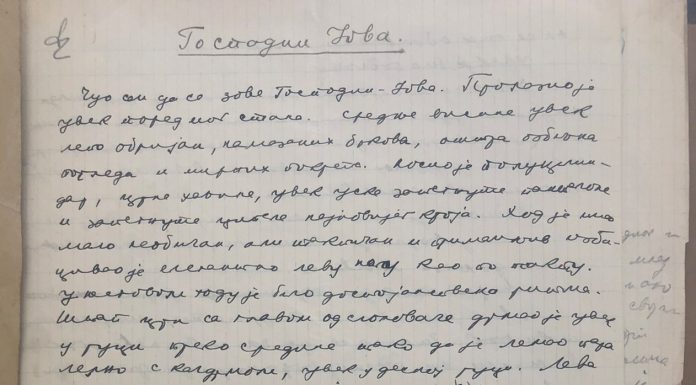 Господин Јова.
Чуо сам да се зове Господин-Јова. Пролазио је
увек поред мог стана. Средње висине увек
лепо обријан, намазаних бркова, оштра
погледа и мирних покрета. Носио је полуцилин-
дар, црне хаљине, увек уско затегнуте панталоне
и затегнуте ципеле најновијег кроја. Ход је имао
мало необичан, али тактичан и
је елегантно леву ногу као по такту.
У његовом ходу је било достојанствено ритма.
Штап црн са главом одслоноваче држао је увек
у руци преко средине тако да је лежао пара
лелно с калдрмом, увек у десној руци. Лева